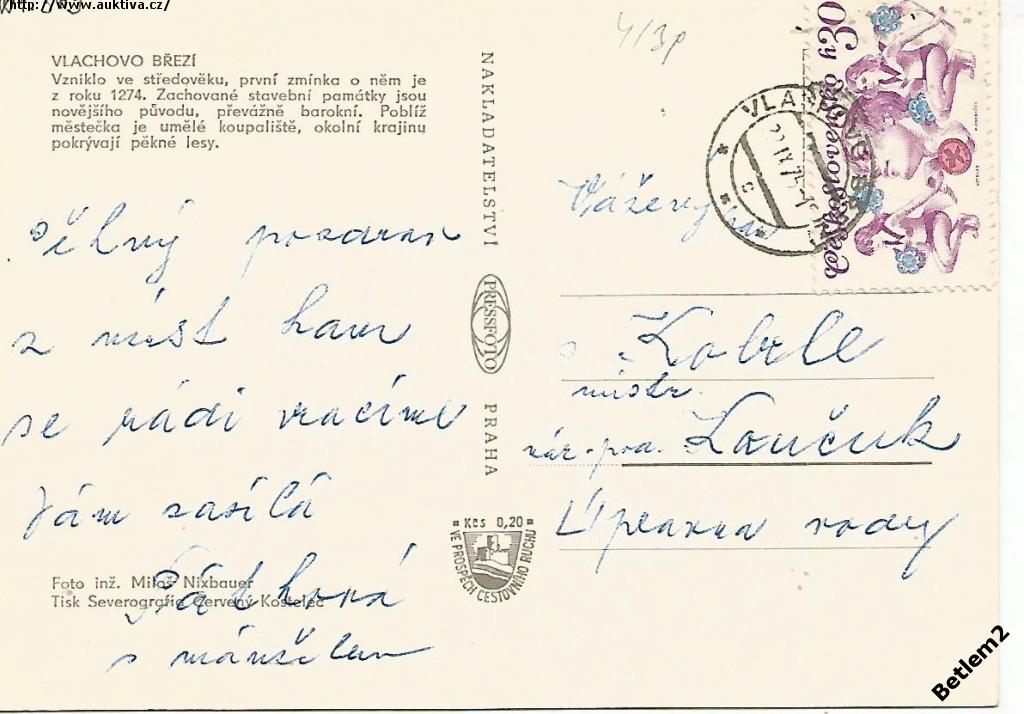 http://www.auktiva.cz/
4/3p
VLACHOVO BŘEZÍ
Vzniklo ve středověku, první zmínka o něm je
z roku 1274. Zachované stavební památky jsou
novějšího původu, převážně barokní. Poblíž
městečka je umělé koupaliště, okolní krajinu
pokrývají pěkné lesy.
pozdrav
z míst kam
se rádi vracíme
Vám zasílá
s manželem
Foto inž. Miloš Nixbauer
Tisk Severografia Červený Kostelec
NAKLADATELSTVÍ
PRESSFOTO
PRAHA
Kčs 0,20
VE PROSPĚCH CESTOVNÍHO RUCHU
30h
Československo
Vážený pan
mistr
nár. pod.
Úpravna vody
Betlem2